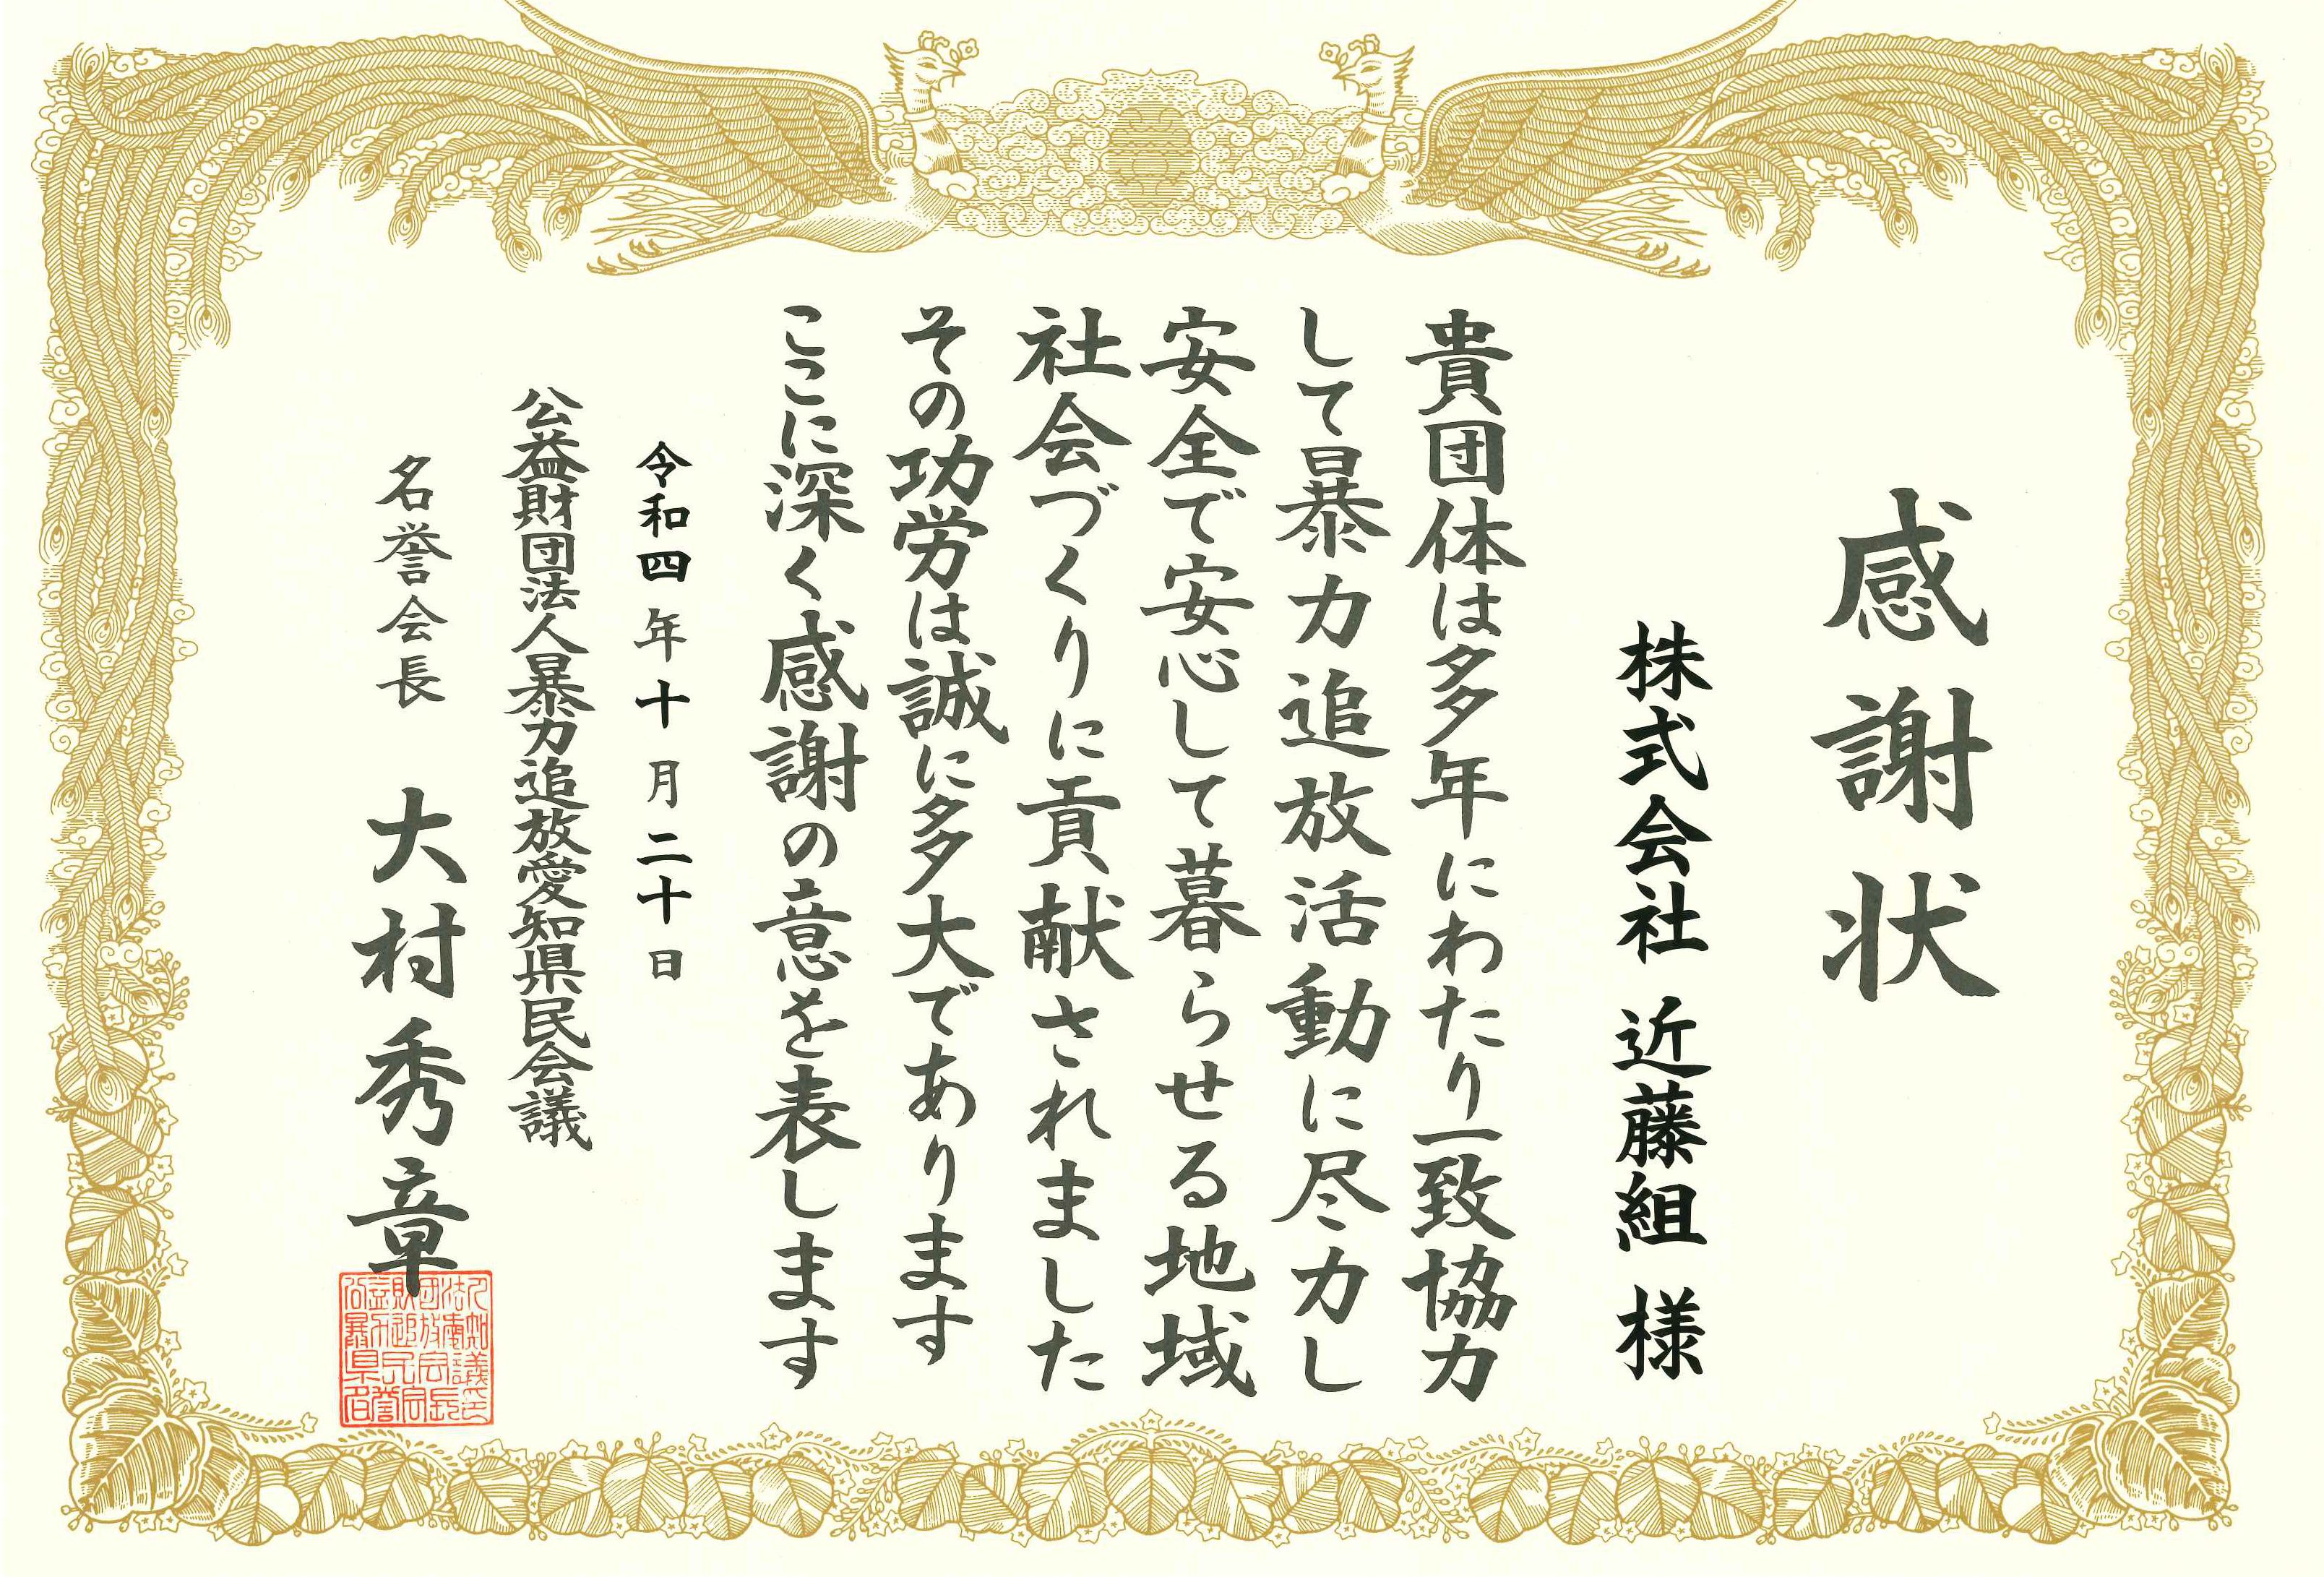 感謝状
株式会社 近藤組 様
貴団体は多年にわたり一致協力
して暴力追放活動に尽力し
安全で安心して暮らせる地域
社会づくりに貢献されました
その功労は誠に多大であります
ここに深く感謝の意を表します
令和四年十月二十日
公益財団法人暴力追放愛知県民会議
名誉会長 大村秀章